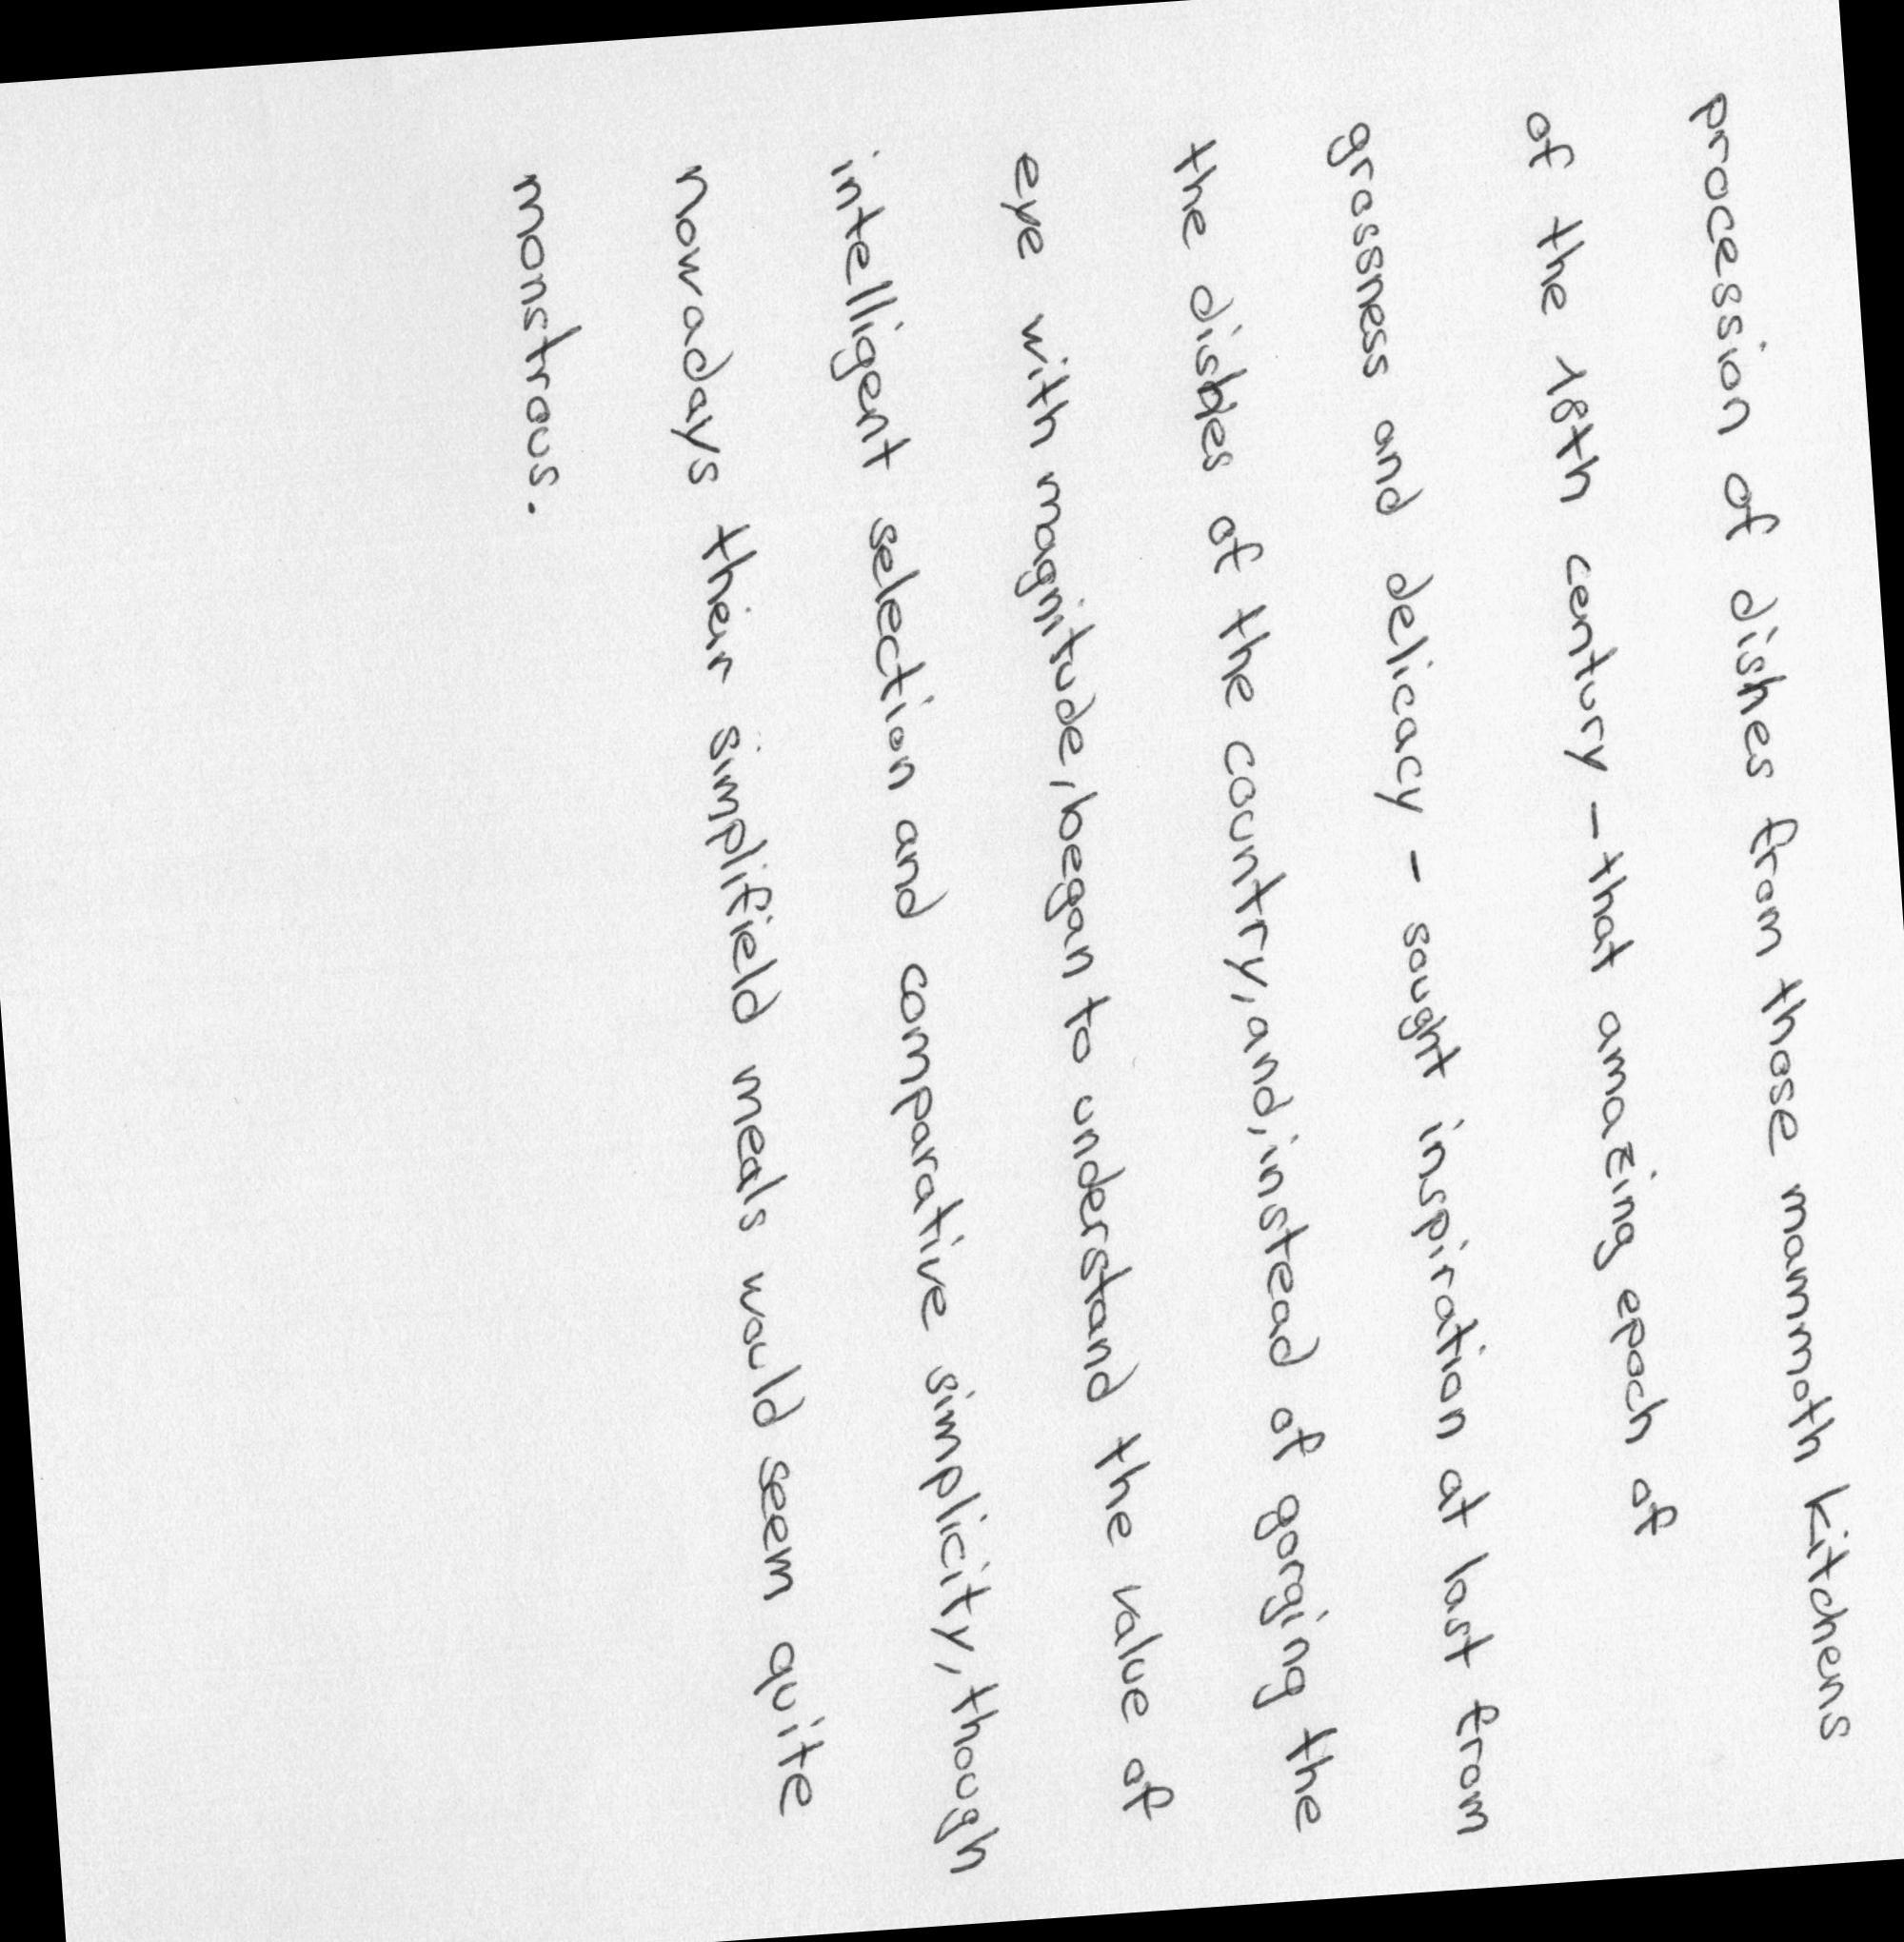 procession of dishes from those mammoth kitchens
of the 18th century - that amazing epoch of
grossness and delicacy - sought inspiration at last from
the dishes of the country, and, instead of gorging the
eye with magnitude, began to understand the value of
intelligent selection and comparative simplicity, though
nowadays their simplifield meals would seem quite
monstrous.